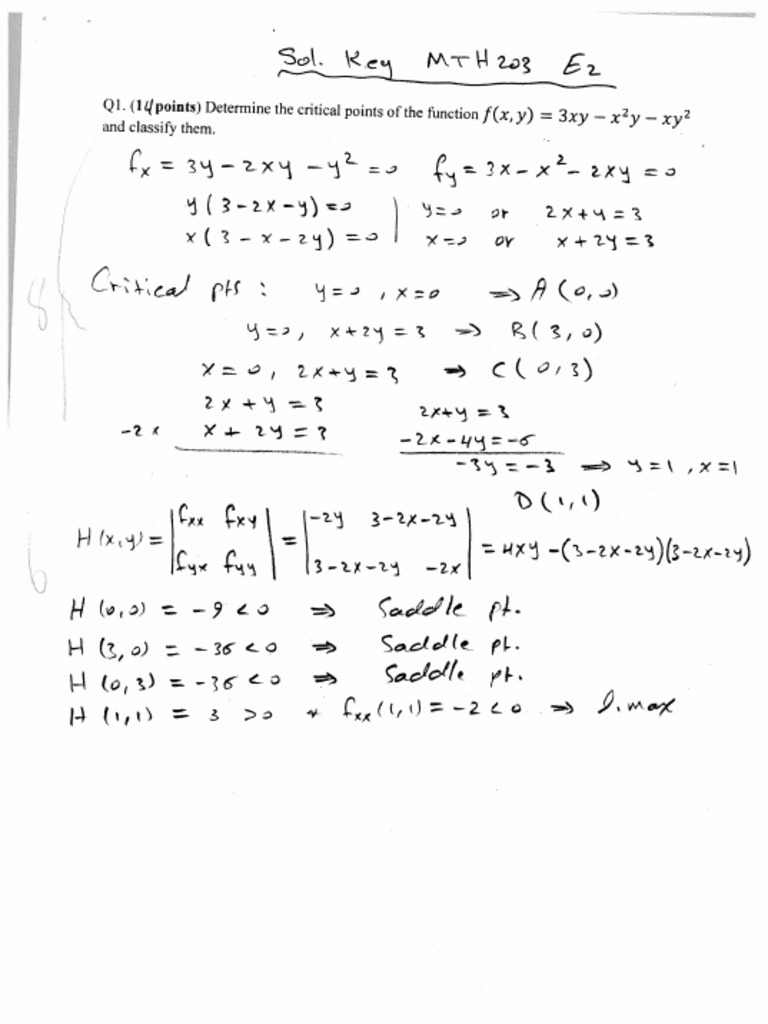 Sol. Key MTH203 E2
Q1. (14 points) Determine the critical points of the function f(x, y) = 3xy − x²y − xy²
and classify them.
fx = 3y − 2xy − y² = 0 fy = 3x − x² − 2xy = 0
y(3−2x−y)=0 | y=0 or 2x+y=3
x(3−x−2y)=0 | x=0 or x+2y=3
8
Critical pts : y=0, x=0 ⇒ A(0,0)
y=0, x+2y=3 ⇒ B(3,0)
x=0, 2x+y=3 ⇒ C(0,3)
2x+y=3 2x+y=3
−2x x+2y=3 −2x−4y=−6
−3y=−3 ⇒ y=1, x=1
D(1,1)
H(x,y)= |fxx fxy| = |−2y 3−2x−2y| = 4xy −(3−2x−2y)(3−2x−2y)
|fyx fyy| |3−2x−2y −2x|
6
H(0,0) = −9 <0 ⇒ Saddle pt.
H(3,0) = −36 <0 ⇒ Saddle pt.
H(0,3) = −36 <0 ⇒ Saddle pt.
H(1,1) = 3 >0 + fxx(1,1)=−2<0 ⇒ l.max